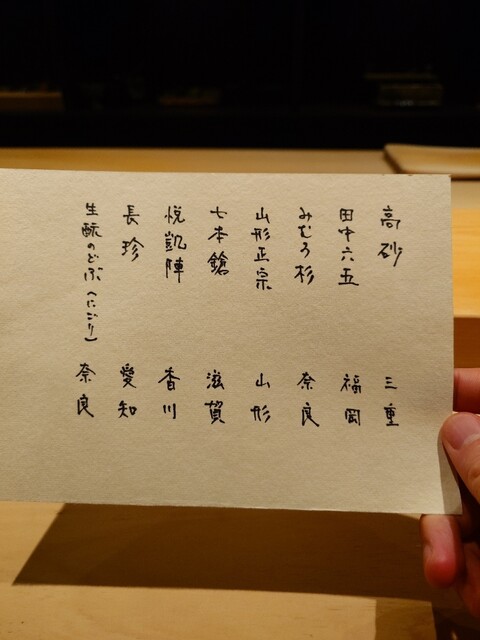 高砂 三重
田中六五 福岡
みむろ杉 奈良
山形正宗 山形
七本鎗 滋賀
悦凱陣 香川
長珍 愛知
生酛のどぶ(にごり) 奈良